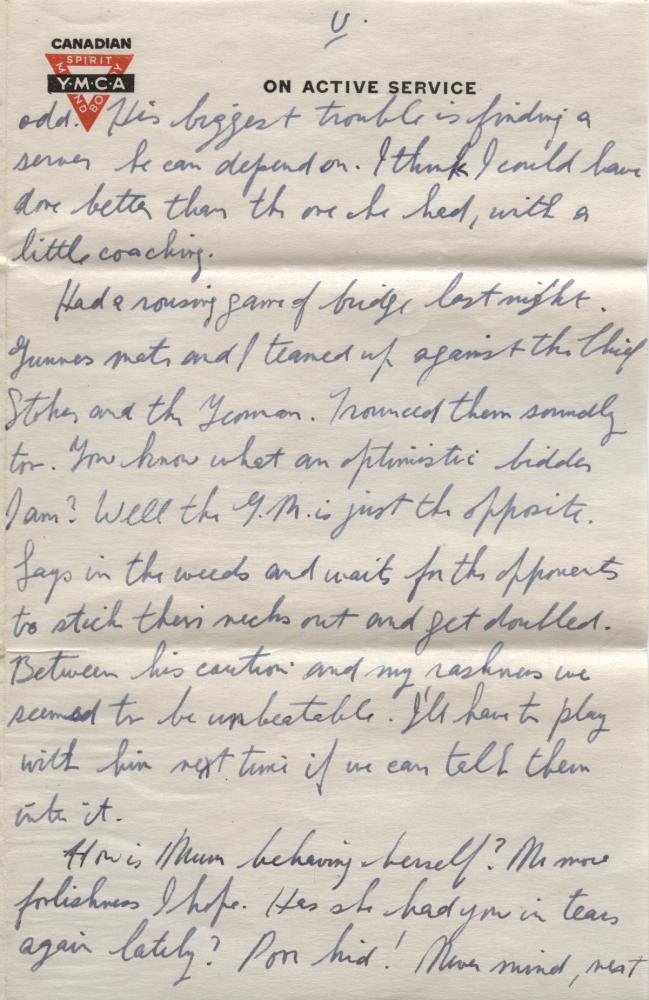 V.
CANADIAN
SPIRIT
MIND
BODY
Y·M·C·A
ON ACTIVE SERVICE
odd. His biggest trouble is finding a
server he can depend on. I think I could have
done better than the one he had, with a
little coaching.
Had a rousing game of bridge last night.
Gunners mate and I teamed up against the Chief
Stoker and the Yeoman. Trounced them soundly
too. You know what an optimistic bidder
I am? Well the G.M. is just the opposite.
Lays in the weeds and waits for the opponents
to stick their necks out and get doubled.
Between his caution and my rashness we
seemed to be unbeatable. I'll have to play
with him next time if we can talk them
into it.
How is Mum behaving herself? No more
foolishness I hope. Has she had you in tears
again lately? Poor kid! Never mind, next